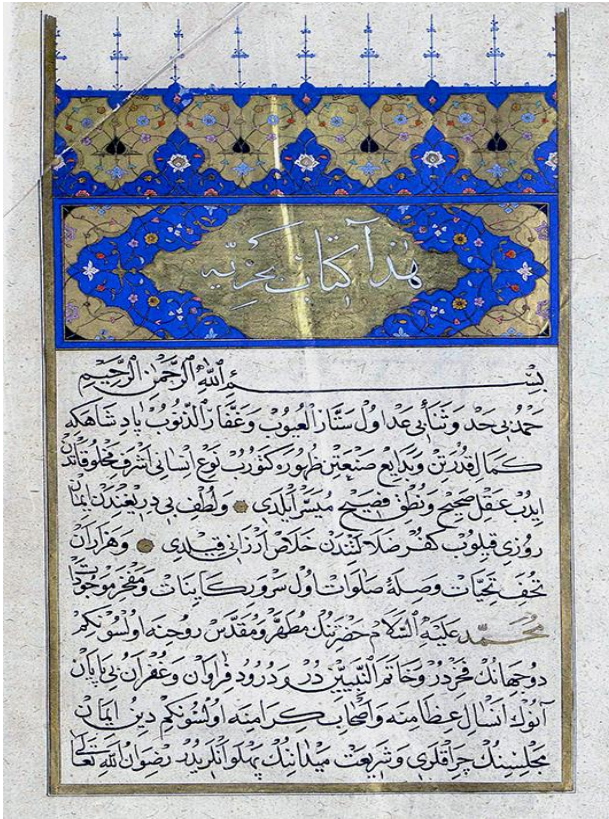 هذا كتاب بحریه
بسم الله الرحمن الرحیم
حمد بی حد و ثنای بی عد اول ستار العیوب و غفار الذنوب پادشاهه که
کمال قدرتن و بدایع صنعتن ظهوره کتورب نوع انسانی اشرف مخلوقاتدن
ایدب عقل صحیح و نطق فصیح میسر ایلدی و لطف بی دریغندن ایمان
روزی قیلوب کفر ضلالتندن خلاص ارزانی قیلدی و هزاران
تحف تحیات وصلۀ صلوات اول سرور کاینات و مفخر موجودات
محمد علیه السلام حضرتنك مطهر و مقدس روحنه اولسونکم
دو جهانك فخردر و خاتم النبیین در و درود فراوان و غفران بی پایان
آنوك انسال عظامنه و اصحاب کرامنه اولسونکم دین ایمان
مجلسینك چراقلری و شریعت میداننك پهلوانلریدر رضوان الله تعالی